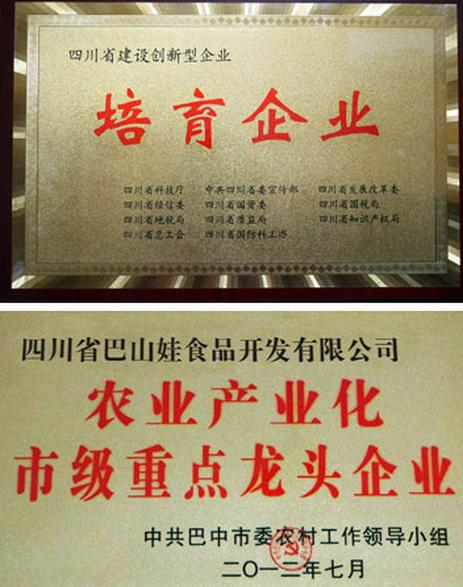 四川省建设创新型企业
培育企业
四川省科技厅 中共四川省委宣传部 四川省发展改革委
四川省经信委 四川省国资委 四川省国税局
四川省地税局 四川省质监局 四川省知识产权局
四川省总工会 四川省国防科工办
四川省巴山娃食品开发有限公司
农业产业化
市级重点龙头企业
中共巴中市委农村工作领导小组
二〇一二年七月